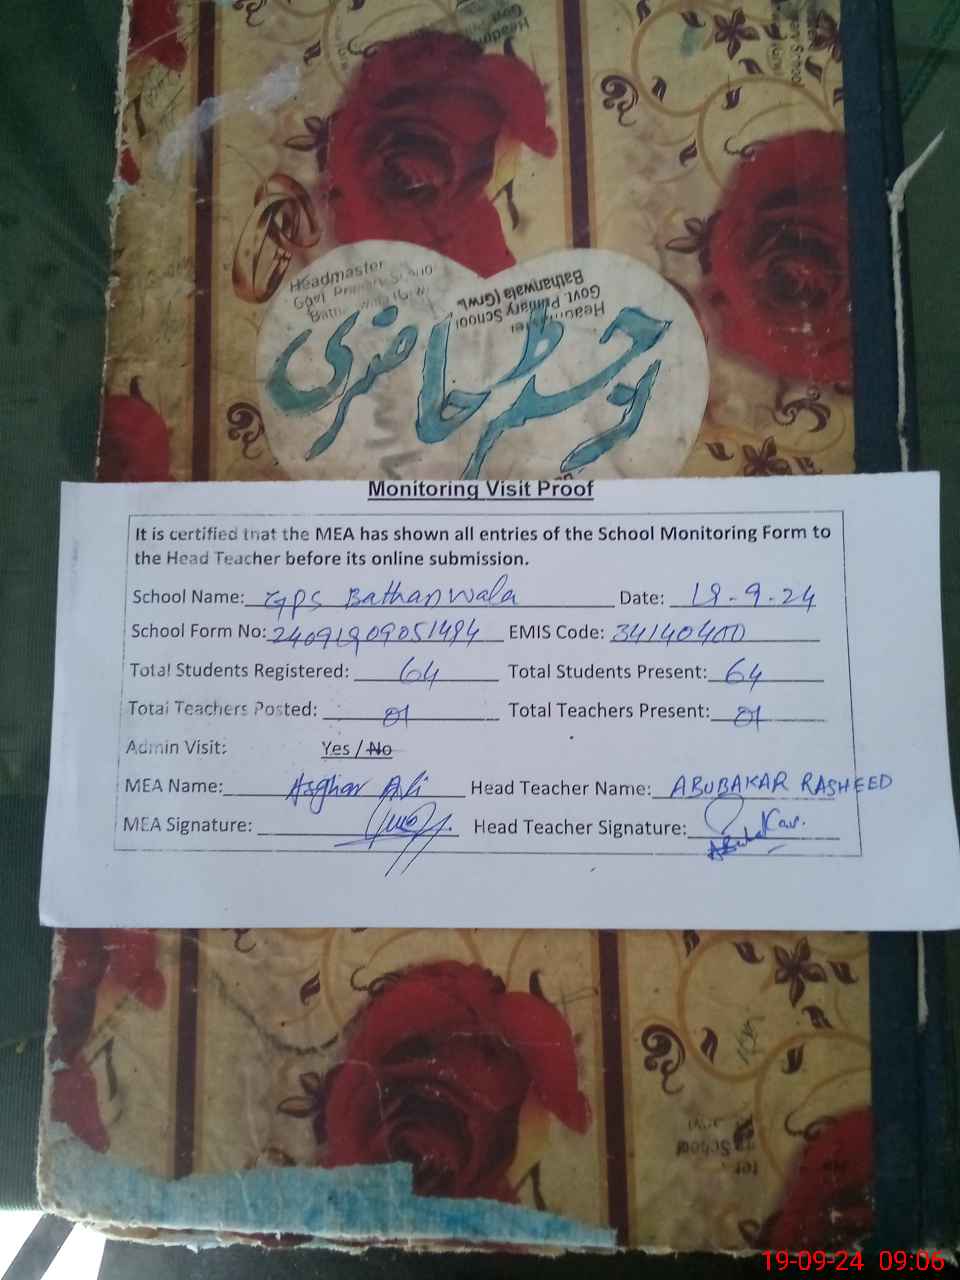 Headmaster
Govt. Primary School
Headmaster
Govt. Primary School
Bathanwala (Grw).
رجسٹر حاضری
Monitoring Visit Proof
It is certified that the MEA has shown all entries of the School Monitoring Form to
the Head Teacher before its online submission.
School Name: GPS Bathanwala Date: 19-9-24
School Form No: 24091909051494 EMIS Code: 34140400
Total Students Registered: 64 Total Students Present: 64
Total Teachers Posted: 01 Total Teachers Present: 01
Admin Visit: Yes / No
MEA Name: Asghar Ali Head Teacher Name: ABUBAKAR RASHEED
MEA Signature: Head Teacher Signature: Abubakar.
School
19-09-24 09:06